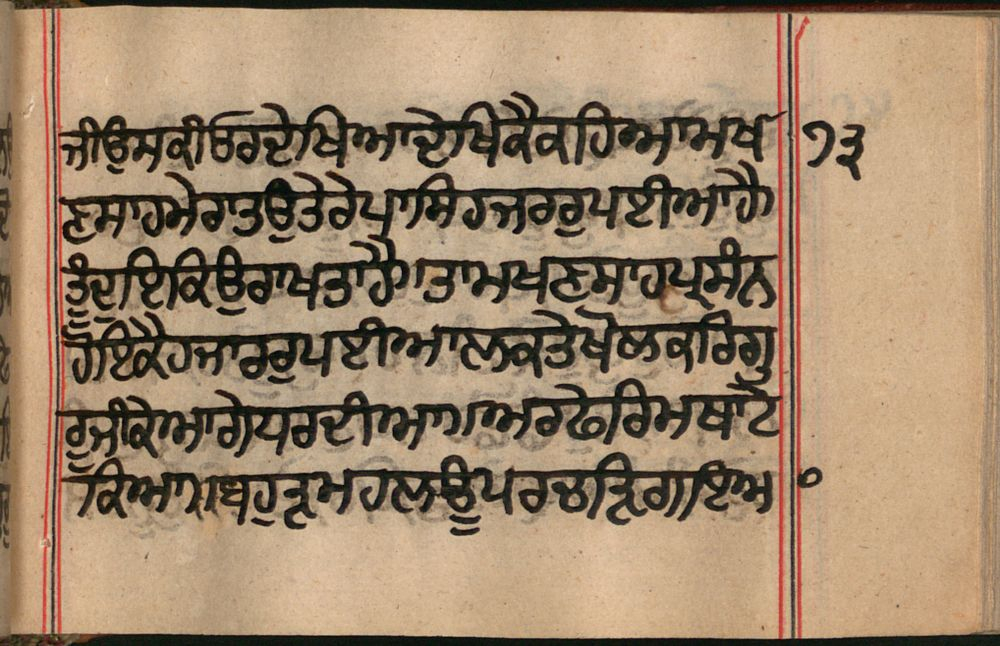 ਜੀਉਸਕੀਓਰਦੇਖਿਆਦੇਖਿਕੈਕਹਿਆਮਖ ੧੩
ਣਸਾਹਮੇਰਾਤਉਤੇਰੇਪਾਸਿਹਜਰਰੁਪਈਆਹੈ।
ਤੂੰਦੁਇਕਿਉਰਾਖਤਾਹੈ।ਤਾਮਖਣਸਾਹਪ੍ਰਸੰਨ
ਹੋਇਕੈਹਜਾਰਰੁਪਈਆਲਕਤੇਖੋਲਕਰਿਗੁ
ਰੂਜੀਕੇਆਗੇਧਰਦੀਆ।ਅਰਢੇਰਿਮਥਾਟੇ
ਕਿਆ।ਬਹੁਤ੍ਰਮਹਲਊਪਰਚੜ੍ਰਿਗਇਅ ੦